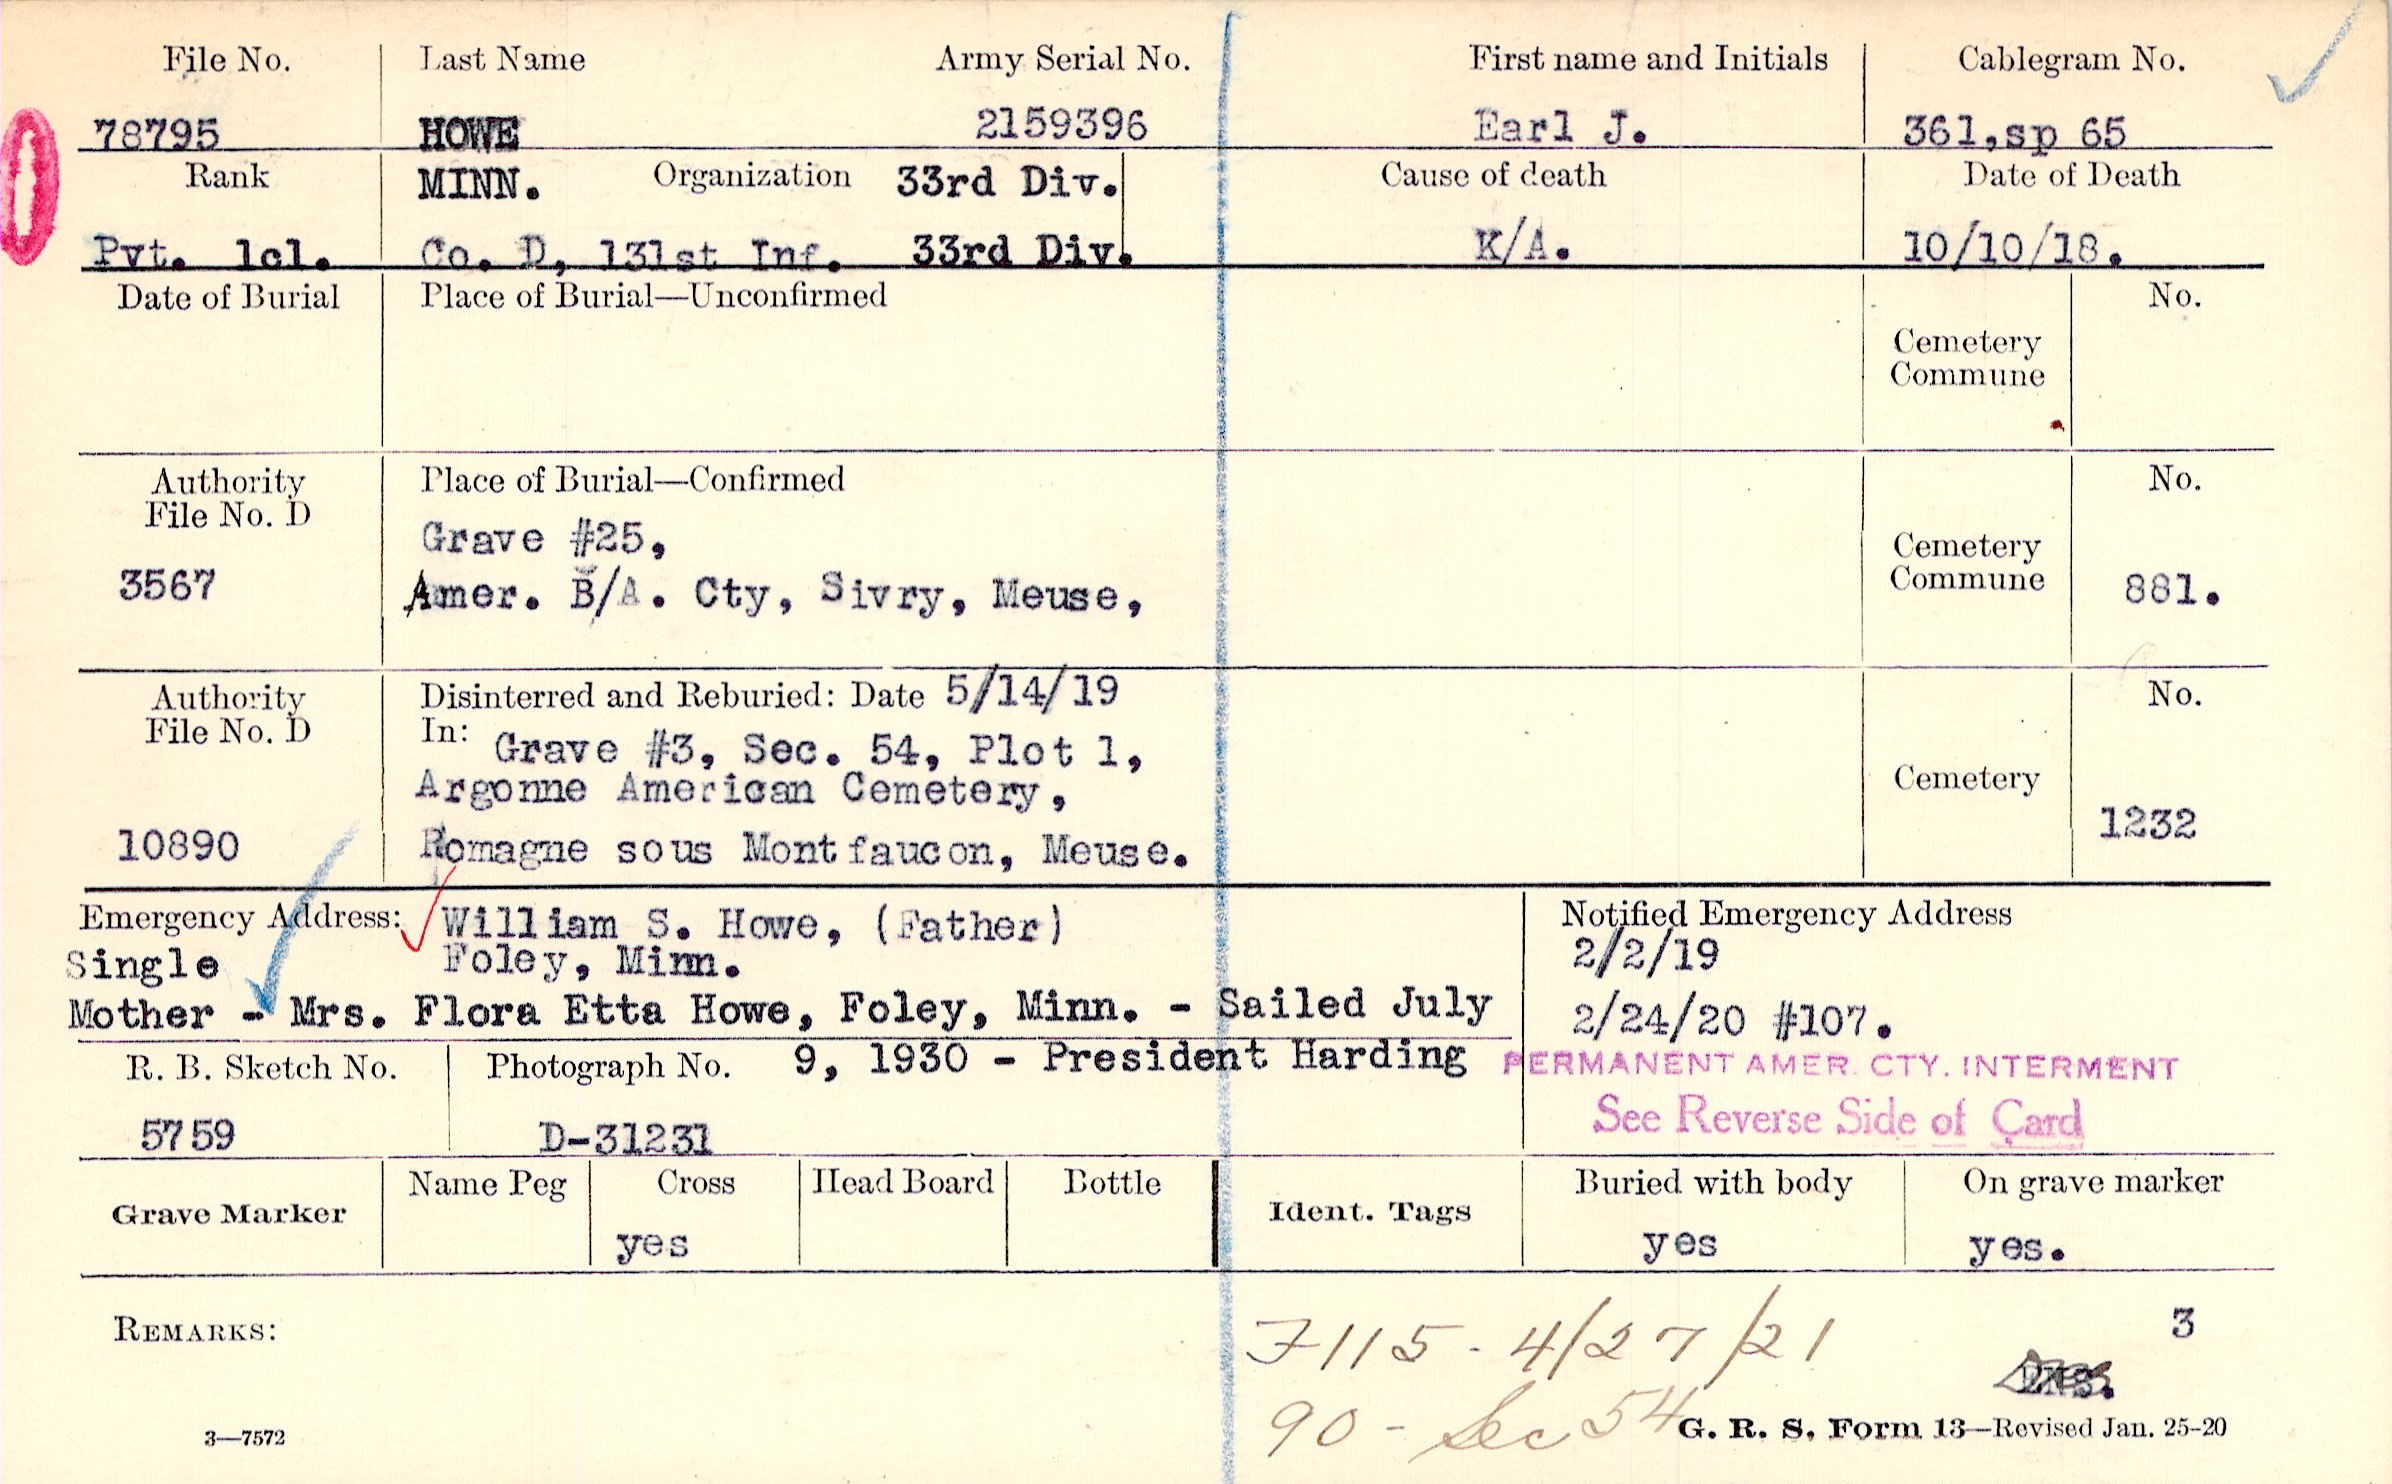 File No. Last Name Army Serial No. First name and Initials Cablegram No.
78795 HOWE 2159396 Earl J. 361,sp 65
Rank MINN. Organization 33rd Div. Cause of death Date of Death
Pvt. 1cl. Co. D, 131st Inf. 33rd Div. K/A. 10/10/18.
Date of Burial Place of Burial—Unconfirmed No.
Cemetery
Commune
Authority Place of Burial—Confirmed No.
File No. D
Grave #25,
Cemetery
3567 Amer. B/A. Cty, Sivry, Meuse, Commune 881.
Authority Disinterred and Reburied: Date 5/14/19 No.
File No. D In: Grave #3, Sec. 54, Plot 1,
Argonne American Cemetery, Cemetery
10890 Romagne sous Montfaucon, Meuse. 1232
Emergency Address: William S. Howe, (Father) Notified Emergency Address
Single Foley, Minn. 2/2/19
Mother - Mrs. Flora Etta Howe, Foley, Minn. - Sailed July 2/24/20 #107.
R. B. Sketch No. Photograph No. 9, 1930 - President Harding PERMANENT AMER. CTY. INTERMENT
5759 D-31231 See Reverse Side of Card
Name Peg Cross Head Board Bottle Buried with body On grave marker
Grave Marker Ident. Tags
yes yes yes.
REMARKS: 3
7115 - 4/27/21
90 - Sec 54
3—7572 G. R. S. Form 13—Revised Jan. 25-20